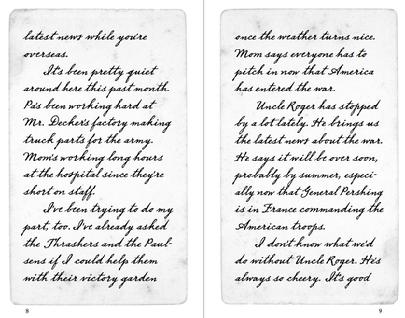 latest news while you're
overseas.
It's been pretty quiet
around here this past month.
Pa's been working hard at
Mr. Decker's factory making
truck parts for the army.
Mom's working long hours
at the hospital since they're
short on staff.
I've been trying to do my
part, too. I've already asked
the Thrashers and the Paul-
sens if I could help them
with their victory garden
8
once the weather turns nice.
Mom says everyone has to
pitch in now that America
has entered the war.
Uncle Roger has stopped
by a lot lately. He brings us
the latest news about the war.
He says it will be over soon,
probably by summer, especi-
ally now that General Pershing
is in France commanding the
American troops.
I don't know what we'd
do without Uncle Roger. He's
always so cheery. It's good
9